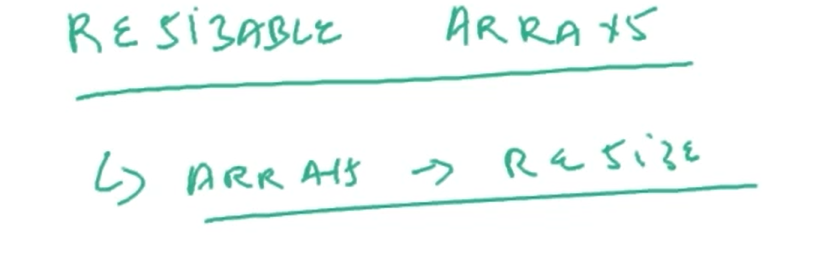 RESIZABLE ARRAYS
↳ ARRAYS → RESIZE